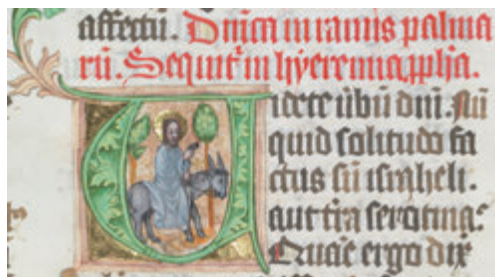 affectū. Dn̄ica in ramis palma
rū. Sequit᷑ in hyeremia ꝓph̄a.
Uidete ūbū dn̄i. Nū
quid solitudo fa
ctus sū israheli.
aut t̄ra serotina:
Quare ergo dix